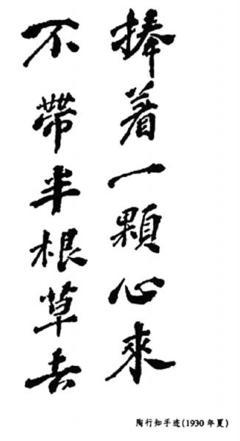 捧着一顆心來
不帶半根草去
陶行知手迹(1930年夏)